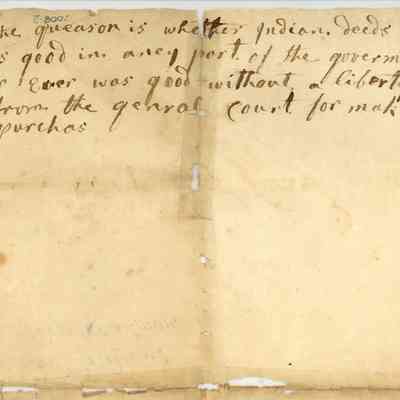 ke queason is whether Indian deeds
s good in aney port of the governm
r Ever was good without a liberte
from the genral Court for mak
purchas